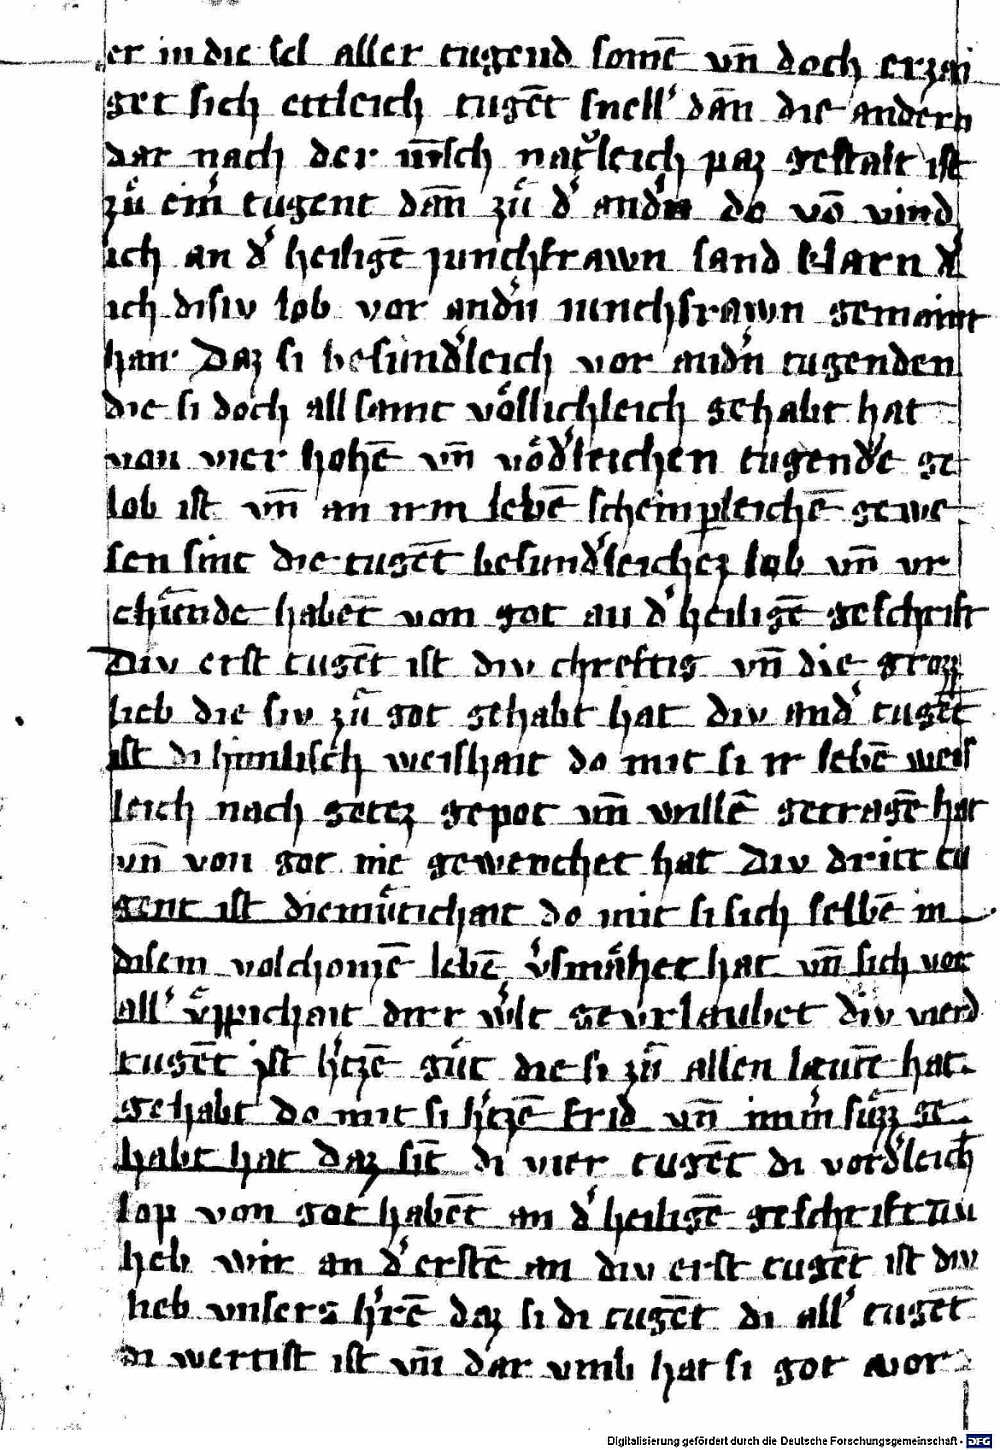 er in die sel aller tugend somē vn̄ doch erzai
get sich ettleich tugēt snell' dān die andern
dar nach der mēsch natůrleich paz gestalt ist
zů eim̄ tugent dan̄ zů d' and'n do vō vind
ich an d' heiligē junchfrawn sand klarn d'
ich disiv lob vor and'n iunchfrawn gemaint
han· Daz si besund'leich vor and'n tugenden
die si doch all samt vo᷑llichleich gehabt hat
von vier hohē vn̄ vo᷑d'leichen tugend'e ge
lob ist vn̄ an irm lebē scheinp̲leichē gewe
sen sint die tugēt besund'leichez lob vn̄ vr
chūende habēt von got an d' heiligē geschrift
Div erst tugēt ist div chreftig vn̄ die grozz
lieb die siv zů got gehabt hat div and' tugēt
ist di himlisch weishait do mit si ir lebē weis
leich nach gotez gepot vn̄ willē getragē hat
vn̄ von got nie gewenchet hat Div dritt tu
gent ist diemůtichait do mit si sich selbē in
disem volchomē lebē v'sma᷑het hat vn̄ sich vor
all' v᷑ppichait dirr w'lt gevrlaubet div vierd
tugēt ist h'tzē gůt die si zů allen læutē hat
gehabt do mit si h'tzē frid vn̄ inn'n suzz ge
habt hat Daz sīt di vier tugēt di vord'leich
lop von got habēt an d' heiligē geschrift Nu
heb wir an d' erstē an div erst tugēt ist div
lieb vnsers h'rē daz si di tugēt di all' tugēt
di wertist ist vn̄ dar vmb hat si got vor
Digitalisierung gefördert durch die Deutsche Forschungsgemeinschaft - DFG